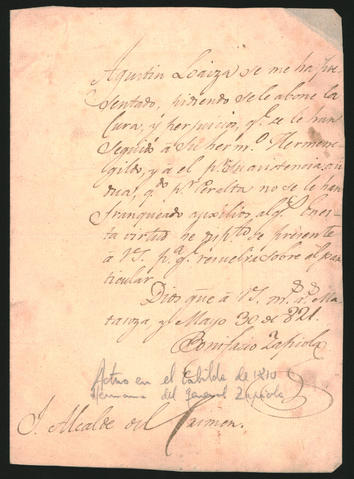 Agustin Loaiza se me ha pre
sentado, pidiendo se le abone la
Cura, y perjuicio, qe. se le han
seguido á Su herm.o Hermene
gildo, y a el pr. Su asistencia
qe. pr. Peralta no se le han
franqueado auxilios, alg.s En es
ta virtud he disp.to se presente
á V pa. qe. resuelva sobre el par
ticular
Dios gue. á V m.s a.s Ma
tanza, y Mayo 30 de 821.
Bonifacio Zapiola
Actuo en el Cabildo de 1810
Hermano del General Zapiola
S. Alcalde del Carmen.